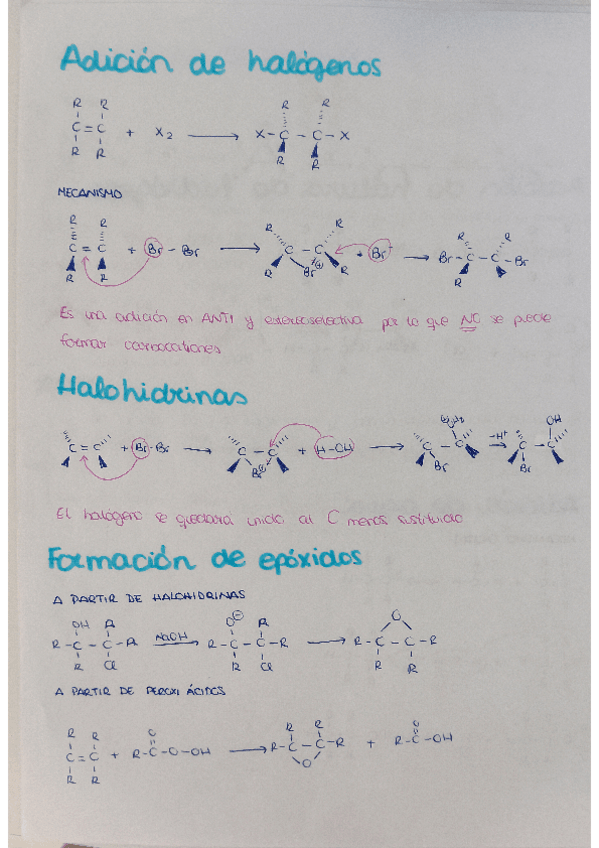 Adición de halógenos
R R R R
C = C + X₂ → X - C - C - X
R R R R
MECANISMO
R R R R R R
C = C + Br - Br → C - C + Br⁻ → Br - C - C - Br
R R R Br⊕ R R
Es una adición en ANTI y estereoselectiva por lo que NO se puede
formar carbocationes
Halohidrinas
⊕OH₂ OH
C = C + Br - Br → C - C + H - OH → C - C -H⁺→ C - C
Br⊕ Br Br
El halógeno se quedará unido al C menos sustituido
Formación de epóxidos
A PARTIR DE HALOHIDRINAS
OH R O⊖ R O
R - C - C - R NaOH → R - C - C - R → R - C - C - R
R Cl R Cl R R
A PARTIR DE PEROXI ÁCIDOS
R R O R R O
C = C + R - C - O - OH → R - C - C - R + R - C - OH
R R O